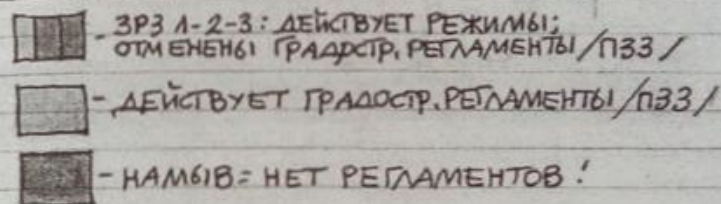 - ЗРЗ 1-2-3: ДЕЙСТВУЕТ РЕЖИМЫ;
ОТМЕНЕНЫ ГРАДОСТР. РЕГЛАМЕНТЫ /ПЗЗ/
- ДЕЙСТВУЕТ ГРАДОСТР. РЕГЛАМЕНТЫ /ПЗЗ/
- НАМЫВ = НЕТ РЕГЛАМЕНТОВ!